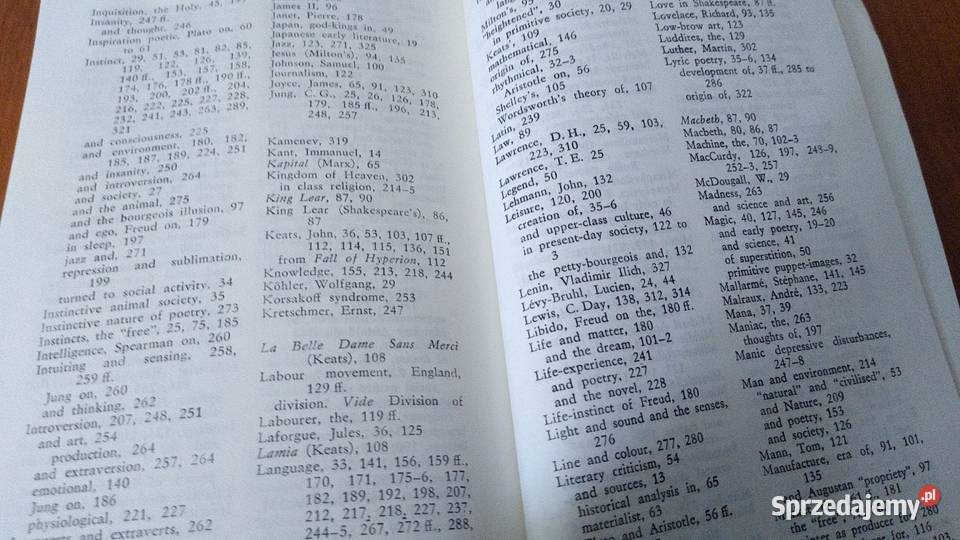 Inquisition, the Holy, 45,
Insanity, 247 ff.
and thought, 246
Inspiration poetic, Plato on, 60
to 61
Instinct, 29, 51, 53, 81, 82, 85,
119, 122, 126, 139,
140 ff., 153, 157, 158,
174, 176, 178 ff., 190 ff.,
193, 200, 202 ff., 204,
216, 222, 225, 227, 228,
232, 241, 243, 263, 289,
321
and consciousness, 225
and environment, 180, 182,
185, 187, 189, 224, 251
and insanity, 250
and introversion, 264
and society, 27
and the animal, 275
and the bourgeois illusion, 97
and ego, Freud on, 179
in sleep, 197
jazz and, 271
repression and sublimation,
199
turned to social activity, 34
Instinctive animal society, 35
Instinctive nature of poetry, 273
Instincts, the "free", 25, 75, 185
Intelligence, Spearman on, 260
Intuiting and sensing, 258,
259 ff.
Jung on, 260
and thinking, 262
Introversion, 207, 248, 251
and art, 254
production, 264
and extraversion, 257, 264
emotional, 140
Jung on, 186
physiological, 221, 227
and extraverts, 262
James II, 96
Janet, Pierre, 178
Japan, god-kings in, 49
Japanese early literature, 19
Jazz, 123, 271, 325
Jesus (Milton's), 94, 135
Johnson, Samuel, 100
Journalism, 122
Joyce, James, 65, 91, 123, 310
Jung, C.G., 25, 26, 126, 178,
179, 185 ff., 196, 213,
248, 257
Kamenev, 319
Kant, Immanuel, 14
Kapital (Marx), 65
Kingdom of Heaven, 302
in class religion, 214–5
King Lear, 87, 90
King Lear (Shakespeare's), 86,
87
Keats, John, 36, 53, 103, 107 ff.,
112, 114, 115, 136, 151
from Fall of Hyperion, 112
Knowledge, 155, 213, 218, 244
Köhler, Wolfgang, 29
Korsakoff syndrome, 253
Kretschmer, Ernst, 247
La Belle Dame Sans Merci
(Keats), 108
Labour movement, England,
129 ff.
division. Vide Division of
Labourer, the, 119 ff.
Laforgue, Jules, 36, 125
Lamia (Keats), 108
Language, 33, 141, 156, 159 ff.,
170, 171, 175–6, 177,
182, 189, 192, 198, 207,
212, 217, 218, 227, 237,
244–5, 267, 272 ff., 288,
Milton's, 95
"heightened", 30
in primitive society, 20, 29
Keats', 109
mathematical, 146
origin of, 275
rhythmical, 32–3
Aristotle on, 56
Shelley's, 105
Wordsworth's theory of, 107
Latin, 239
Law, 89
Lawrence, D. H., 25, 59, 103,
223, 310
Lawrence, T. E. 25
Legend, 50
Lehmann, John, 132
Leisure, 120, 200
creation of, 35–6
and upper-class culture, 46
in present-day society, 122 to
3
the petty-bourgeois and, 132
Lenin, Vladimir Ilich, 327
Lévy-Bruhl, Lucien, 24, 44
Lewis, C. Day, 138, 312, 314
Libido, Freud on the, 180 ff.
Life and matter, 180
and the dream, 101–2
Life-experience, 241
and poetry, 227
and the novel, 228
Life-instinct of Freud, 180
Light and sound and the senses,
276
Line and colour, 277, 280
Literary criticism, 54
and sources, 13
historical analysis in, 65
materialist, 63
Plato and Aristotle, 56 ff.
Love in Shakespeare, 87 ff.
Lovelace, Richard, 93, 135
Low-brow art, 123
Luddites, the, 129
Luther, Martin, 302
Lyric poetry, 35–6, 134
development of, 37 ff., 285 to
286
origin of, 322
Macbeth, 87, 90
Macbeth, 80, 86, 87
Machine, the, 70, 102–3
MacCurdy, 126, 197, 248–9,
252–3, 257
McDougall, W., 29
Madness, 263
and science and art, 256
Magic, 40, 127, 145, 246
and early poetry, 19–20
and science, 41
of superstition, 50
primitive puppet-images, 32
Mallarmé, Stéphane, 141, 145
Malraux, André, 133, 223
Mana, 37, 39
Maniac, the, 263
thoughts of, 197
Manic depressive disturbances,
247–8
Man and environment, 214
"natural" and "civilised", 53
and Nature, 209
and poetry, 153
and society, 126
Mann, Tom, 121
Manufacture, era of, 91, 101,
135
and Augustan "propriety", 97
the "free", 61 ff., 181
as producer for, 280
for, 116
Sprzedajemy.pl